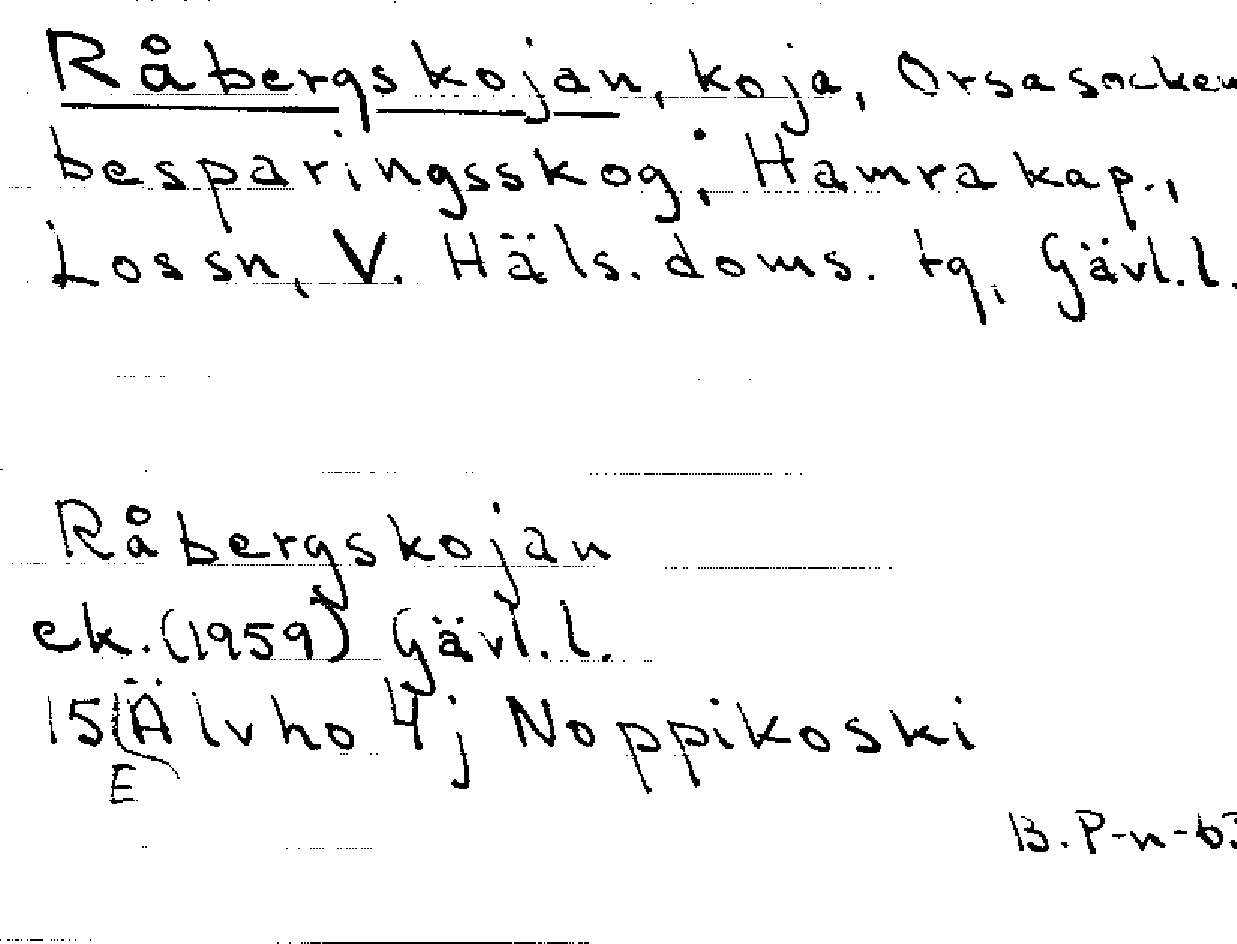 Råbergskojan, koja, Orsa socken
besparingsskog; Hamra kap.,
Lossn, V. Häls. doms. tg, Gävl.l.
Råbergskojan
ek. (1959) Gävl.l.
15 Älvho 4j Noppikoski
E
B. P-n-63